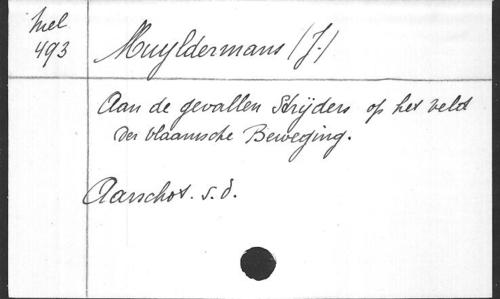 Mel
493
Muyldermans (J.)
Aan de gevallen Strijders op het veld
der vlaamsche Beweging.
Aarschot. s.d.